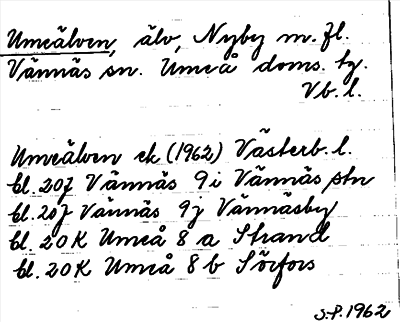 Umeälven, älv, Nyby m.fl.
Vännäs sn. Umeå doms. tg.
Vb.l.
Umeälven ek (1962) Västerb.l.
bl. 20J Vännäs 9i Vännäs stn
bl. 20J Vännäs 9j Vännäsby
bl. 20K Umeå 8a Strand
bl. 20K Umeå 8b Sörfors
S.P. 1962